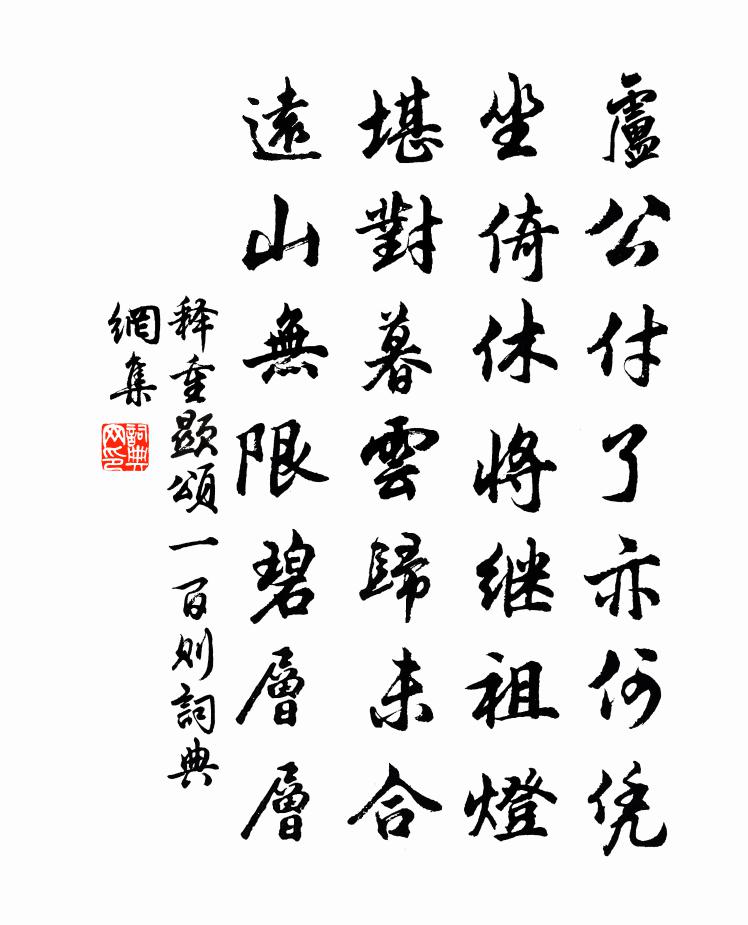 盧公付了亦何凭
坐倚休將继祖燈
堪對暮雲歸未合
遠山無限碧層層
释重顯頌一百则詞典
網集
詞典
网印